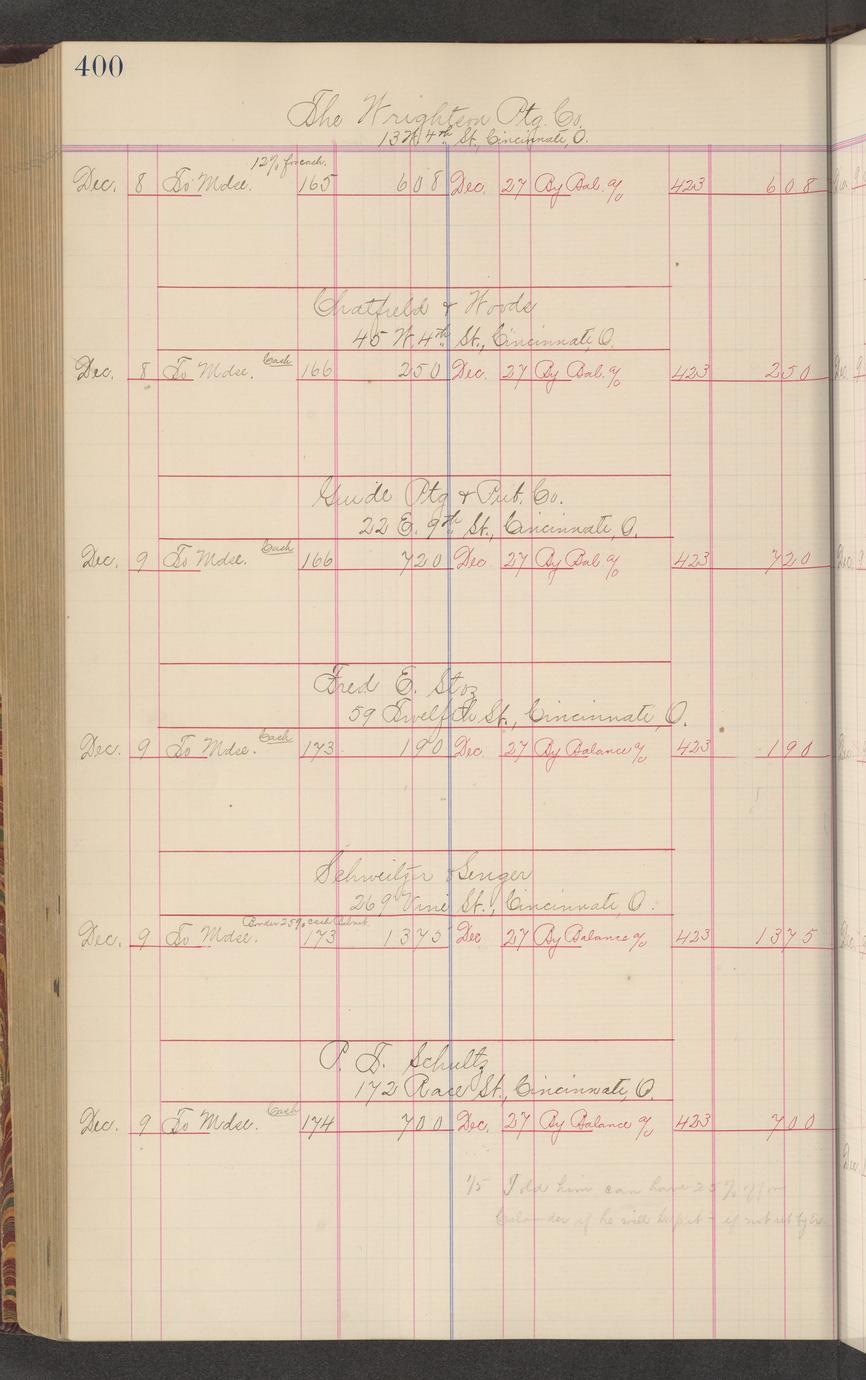 400
The Wrightson Ptg. Co.
13 W. 4th St., Cincinnati, O.
12% for cash.
Dec. 8 To Mdse. 165 608 Dec. 27 By Bal. % 423 608
Chatfield & Woods
45 W. 4th St., Cincinnati, O.
Cash
Dec. 8 To Mdse. 166 250 Dec. 27 By Bal. % 423 250
Guide Ptg & Pub. Co.
22 E. 9th St., Cincinnati, O.
Cash
Dec. 9 To Mdse. 166 720 Dec. 27 By Bal % 423 720
Fred E. Stoz
59 Twelfth St., Cincinnati, O.
Cash
Dec. 9 To Mdse. 173 190 Dec. 27 By Balance % 423 190
Schweitzer & Senger
269 Vine St., Cincinnati, O.
25% cash
Dec. 9 To Mdse. 173 1375 Dec 27 By Balance % 423 1375
P. T. Schultz
172 Race St., Cincinnati, O.
Cash
Dec. 9 To Mdse. 174 700 Dec. 27 By Balance % 423 700
1/5 Told him can have 25% off on
if he will - if not